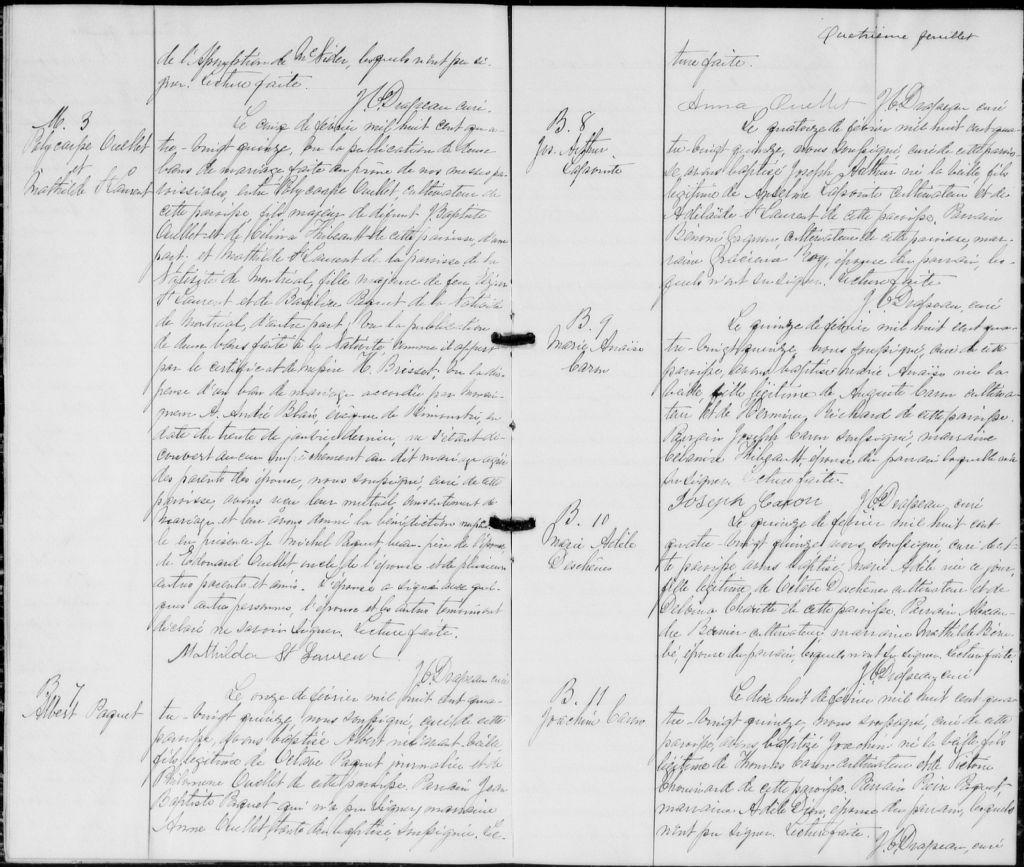 de l'Assomption de McNider, lesquels n'ont pu si-
gner. Lecture faite.
J. C. Drapeau curé
M. 3
Polycarpe Ouellet
et
Mathilde St Laurent
Le onze de février mil huit cent qua-
tre-vingt quinze, vu la publication de deux
bans de mariage faite au prône de nos messes pa-
roissiales, entre Polycarpe Ouellet, cultivateur de
cette paroisse, fils majeur de défunt J. Baptiste
Ouellet et de Thibeault de cette paroisse, d'une
part, et Mathilde St Laurent de la paroisse de la
Nativité de Montréal, fille majeure de feu
St Laurent et de Basilisse Paquet de la Nativité
de Montréal, d'autre part; vu la publication
de deux bans faite à la Nativité comme il appert
par le certificat de messire H. Brisset, vu la dis-
pense d'un ban de mariage accordée par Monsei-
gneur A. André Blais, évêque de Rimouski, en
date du trente de janvier dernier, ne s'étant dé-
couvert aucun empêchement au dit mariage
des parents des époux, nous soussigné, curé de cette
paroisse, avons reçu leur mutuel consentement de
mariage et leur avons donné la bénédiction nuptia-
le en présence de Michel Paquet beau-père de l'épouse
de Edouard Ouellet oncle de l'époux et de plusieurs
autres parents et amis. L'épouse a signé avec quel-
ques autres personnes, l'époux et les autres témoins ont
déclaré ne savoir signer. Lecture faite.
Mathilda St Laurent
J. C. Drapeau curé
B. 7
Albert Paquet
Le onze de février mil huit cent qua-
tre-vingt quinze, nous soussigné, curé de cette
paroisse, avons baptisé Albert né avant-hier,
fils légitime de Octave Paquet journalier et de
Philomène Ouellet de cette paroisse. Parrain Jean
Baptiste Paquet qui n'a pu signer, marraine
Anne Ouellet tante du baptisé, soussignée. Lec-
Quatrième feuillet
ture faite.
Anna Ouellet J. C. Drapeau curé
B. 8
Jos. Arthur
Lapointe
Le quatorze de février mil huit cent qua-
tre-vingt quinze, nous soussigné curé de cette parois-
se, avons baptisé Joseph Arthur né la veille fils
légitime de Anselme Lapointe cultivateur et de
Adélaïde St Laurent de cette paroisse. Parrain
Benoni Gagnon, cultivateur de cette paroisse, mar-
raine Gracieuse Roy, épouse du parrain, les-
quels n'ont su signer. Lecture faite
J. C. Drapeau, curé
B. 9
Marie Anaïse
Caron
Le quinze de février mil huit cent qua-
tre-vingt quinze, nous soussigné, curé de cette
paroisse, avons baptisé Marie Anaïse née la
veille, fille légitime de Auguste Caron cultiva-
teur et de Herméline Richard de cette paroisse.
Parrain Joseph Caron soussigné, marraine
Célanire Thibeault, épouse du parrain laquelle n'a
su signer. Lecture faite.
Joseph Caron J. C. Drapeau, curé
B. 10
Marie Adèle
Deschenes
Le quinze de février mil huit cent
quatre-vingt quinze nous soussigné, curé de cet-
te paroisse avons baptisé, Marie Adèle née ce jour,
fille légitime de Octave Deschenes cultivateur et de
Delvina Charette de cette paroisse. Parrain Alexan-
dre Bernier cultivateur, marraine Mathilde Béru-
bé, épouse du parrain, lesquels n'ont su signer. Lecture faite.
J. C. Drapeau, curé
B. 11
Joachim Caron
Le dix huit de février mil huit cent qua-
tre-vingt quinze, nous soussigné, curé de cette
paroisse, avons baptisé Joachim né la veille fils
légitime de Thomas Caron cultivateur et de Victoire
Chouinard de cette paroisse. Parrain Pierre Paquet
marraine Adèle Dion, épouse du parrain, lesquels
n'ont pu signer. Lecture faite.
J. C. Drapeau, curé